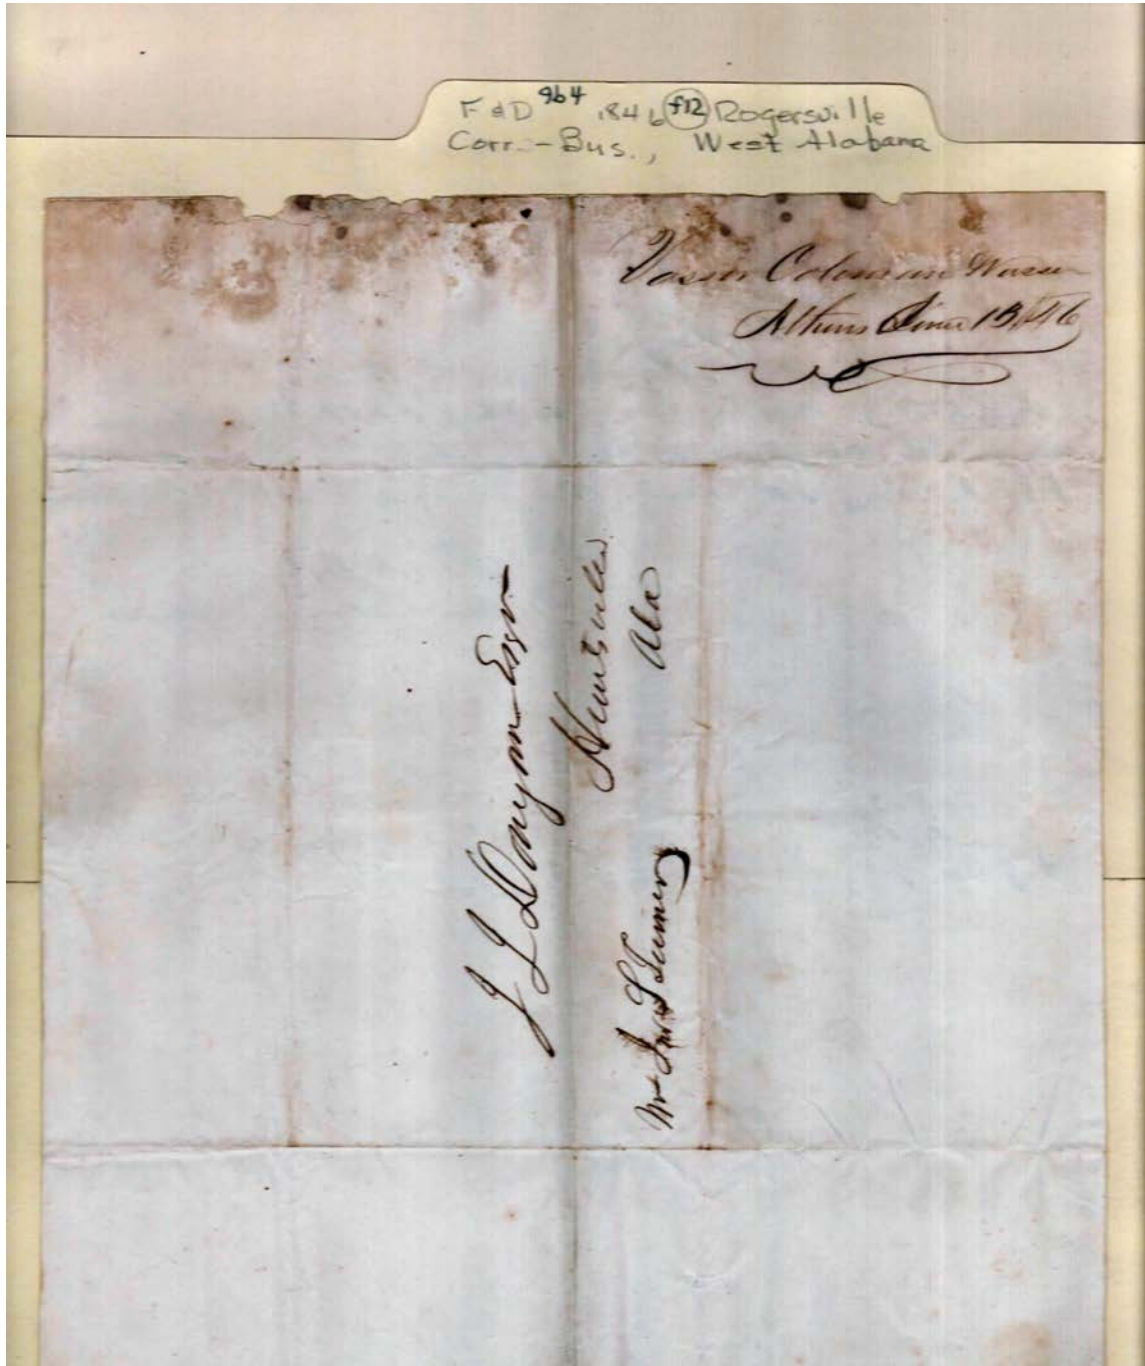 F & D 9b4 1846 f12 Rogersville
Corr.-Bus., West Alabama
Vasser Coleman
Athens June 13/46
J J Donegan Esqr
Huntsville
Ala
Mr Jno Turner